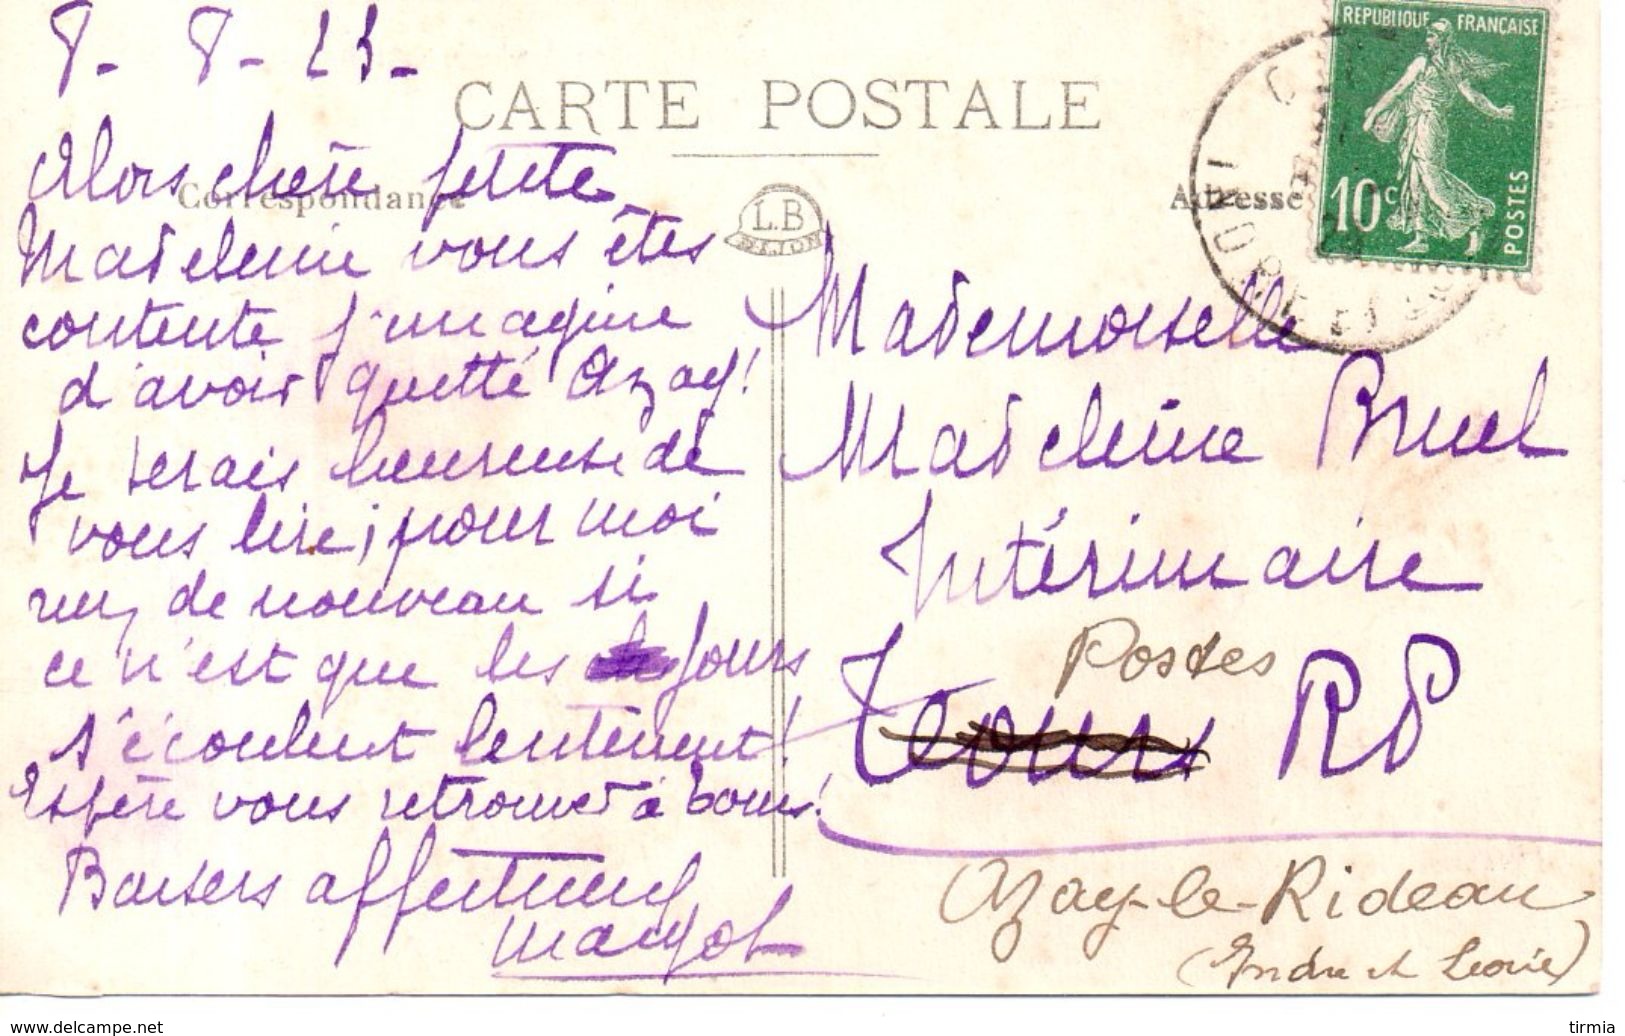 8 - 8 - 23 -
CARTE POSTALE
Correspondance
Alors chère petite
Madeleine vous êtes
contente j'imagine
d'avoir quitté Azay!
Je serais heureuse de
vous lire; pour moi
rien de nouveau si
ce n'est que les jours
s'écoulent lentement!
Espère vous retrouver à Tours!
Baisers affectueux
Margot
L.B
DIJON
REPUBLIQUE FRANÇAISE
10c
POSTES
INDRE ET
Adresse
Mademoiselle
Madeleine Bruel
Intérimaire
Postes
Tours RP
Azay-le-Rideau
(Indre et Loire)
www.delcampe.net
tirmia